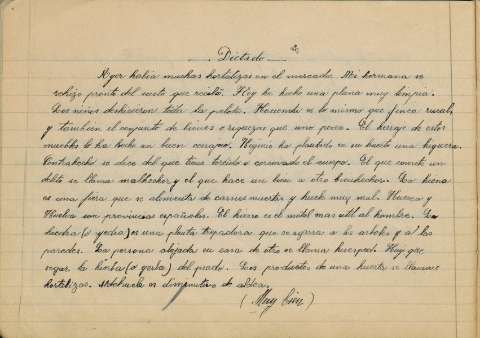 Dictado
Ayer había muchas hortalizas en el mercado. Mi hermana se
rehizo pronto del susto que recibió. Hoy he hecho una plana muy limpia.
Los niños deshicieron toda la pelota. Hacienda es lo mismo que finca rural,
y también el conjunto de bienes o riquezas que uno posee. El herraje de estos
muebles lo ha hecho un buen cerrajero. Higinio ha plantado en su huerto una higuera.
Contrahecho se dice del que tiene torcido o corcovado el cuerpo. El que comete un
delito se llama malhechor y el que hace un bien a otro bienhechor. La hiena
es una fiera que se alimenta de carnes muertas y huele muy mal. Huesca y
Huelva son provincias españolas. El hierro es el metal más útil al hombre. La
hiedra (o yedra) es una planta trepadora que se agarra a los árboles y a las
paredes. La persona alojada en casa de otro se llama huésped. Hay que
segar la hierba (o yerba) del prado. Los productos de una huerta se llaman
hortalizas. Aldehuela es diminutivo de aldea.
(Muy bien)